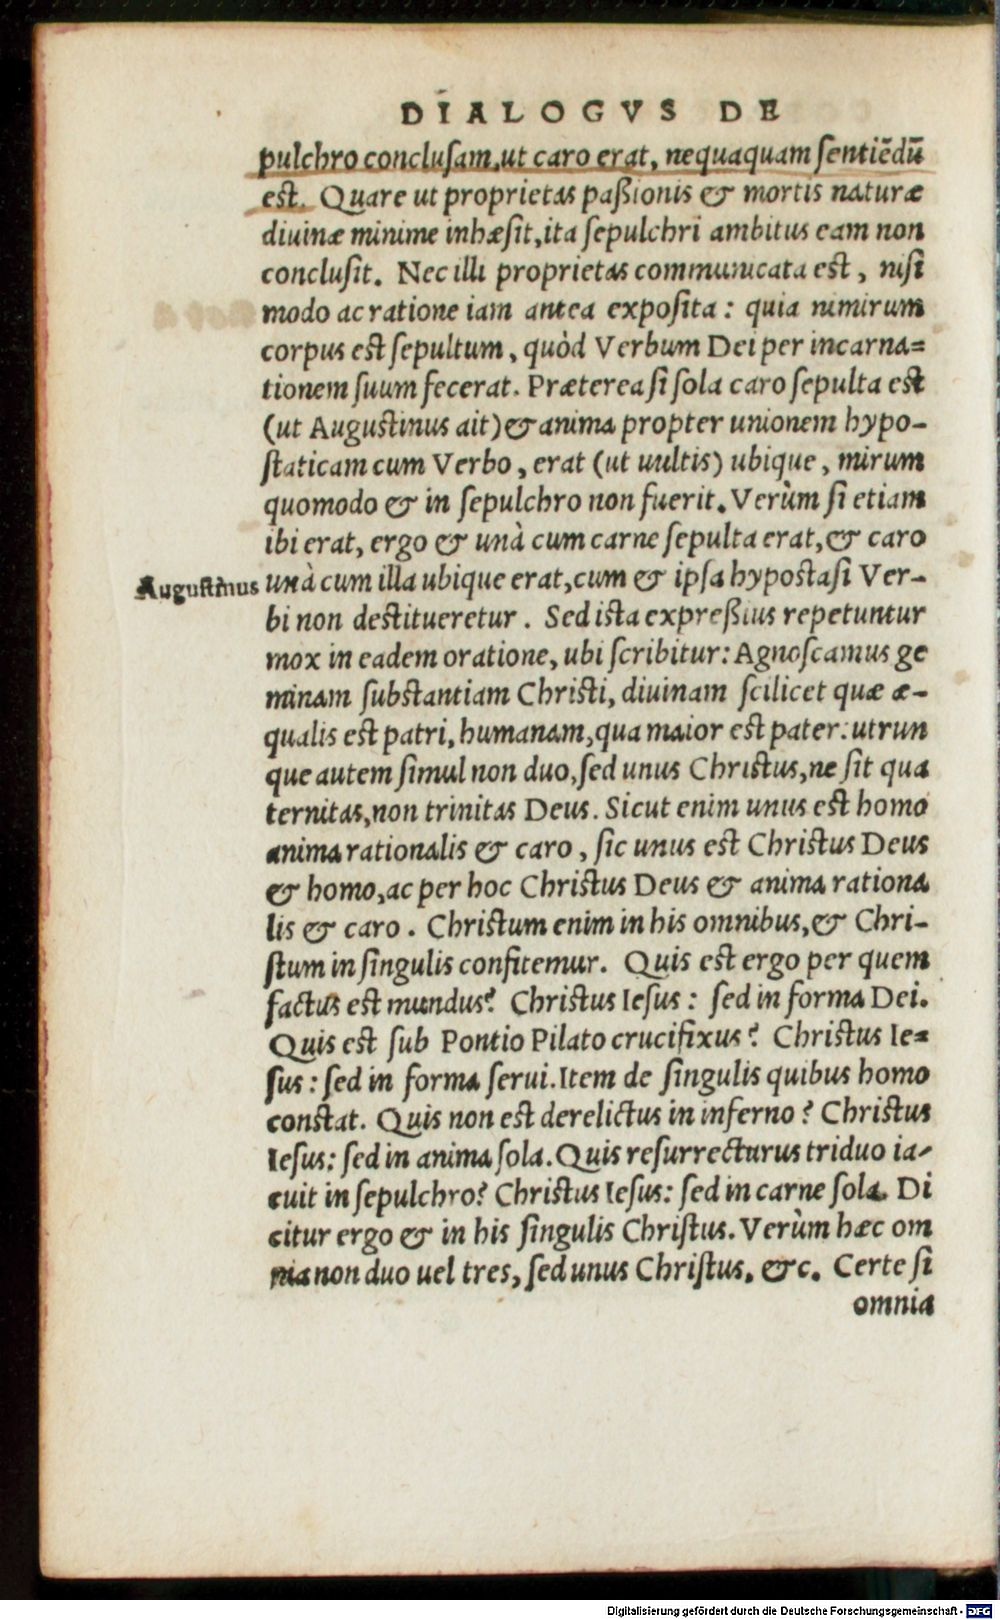 DIALOGVS DE
pulchro conclusam, ut caro erat, nequaquam sentiēdū
est. Quare ut proprietas paßionis & mortis naturæ
diuinæ minime inhæsit, ita sepulchri ambitus eam non
conclusit. Nec illi proprietas communicata est, nisi
modo ac ratione iam antea exposita: quia nimirum
corpus est sepultum, quòd Verbum Dei per incarna=
tionem suum fecerat. Præterea si sola caro sepulta est
(ut Augustinus ait) & anima propter unionem hypo-
staticam cum Verbo, erat (ut uultis) ubique, mirum
quomodo & in sepulchro non fuerit. Verùm si etiam
ibi erat, ergo & unà cum carne sepulta erat, & caro
Augustinus
unà cum illa ubique erat, cum & ipsa hypostasi Ver-
bi non destitueretur. Sed ista expreßius repetuntur
mox in eadem oratione, ubi scribitur: Agnoscamus ge
minam substantiam Christi, diuinam scilicet quæ æ-
qualis est patri, humanam, qua maior est pater: utrun
que autem simul non duo, sed unus Christus, ne sit qua
ternitas, non trinitas Deus. Sicut enim unus est homo
anima rationalis & caro, sic unus est Christus Deus
& homo, ac per hoc Christus Deus & anima rationa
lis & caro. Christum enim in his omnibus, & Chri-
stum in singulis confitemur. Quis est ergo per quem
factus est mundus? Christus Iesus: sed in forma Dei.
Quis est sub Pontio Pilato crucifixus? Christus Ie=
sus: sed in forma serui. Item de singulis quibus homo
constat. Quis non est derelictus in inferno? Christus
Iesus: sed in anima sola. Quis resurrecturus triduo ia-
cuit in sepulchro? Christus Iesus: sed in carne sola. Di
citur ergo & in his singulis Christus. Verùm hæc om
nia non duo uel tres, sed unus Christus. &c. Certe si
omnia
Digitalisierung gefördert durch die Deutsche Forschungsgemeinschaft - DFG